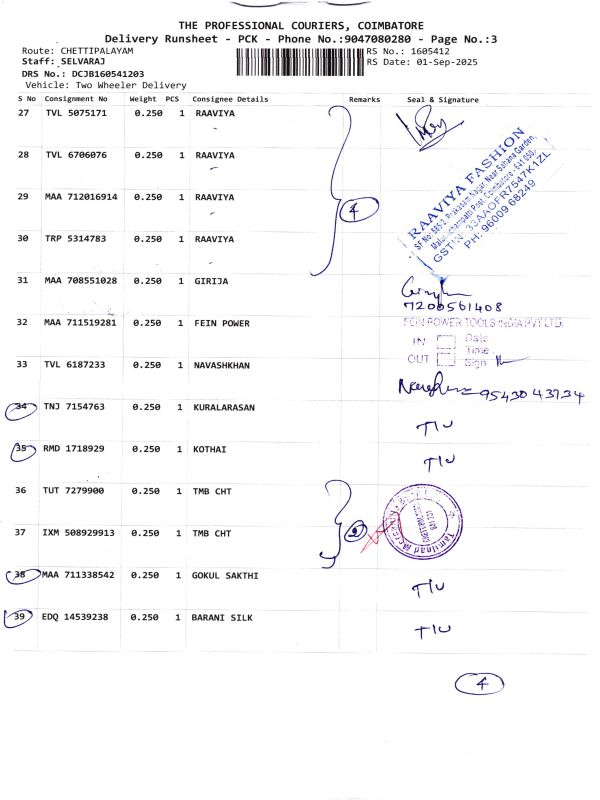 THE PROFESSIONAL COURIERS, COIMBATORE
Delivery Runsheet - PCK - Phone No.:9047080280 - Page No.:3
Route: CHETTIPALAYAM
RS No.: 1605412
Staff: SELVARAJ
RS Date: 01-Sep-2025
DRS No.: DCJB160541203
Vehicle: Two Wheeler Delivery
S No Consignment No Weight PCS Consignee Details Remarks Seal & Signature
27 TVL 5075171 0.250 1 RAAVIYA
28 TVL 6706076 0.250 1 RAAVIYA
29 MAA 712016914 0.250 1 RAAVIYA
4
30 TRP 5314783 0.250 1 RAAVIYA
RAAVIYA FASHION
GSTIN: 33AAOFR7547K1ZL
PH: 96009 68249
31 MAA 708551028 0.250 1 GIRIJA
7200561408
32 MAA 711519281 0.250 1 FEIN POWER
FEIN POWER TOOLS INDIA PVT LTD.
IN Date
Time
OUT Sign
33 TVL 6187233 0.250 1 NAVASHKHAN
9543043734
34 TNJ 7154763 0.250 1 KURALARASAN T/U
35 RMD 1718929 0.250 1 KOTHAI T/U
36 TUT 7279900 0.250 1 TMB CHT
2
37 IXM 508929913 0.250 1 TMB CHT
38 MAA 711338542 0.250 1 GOKUL SAKTHI T/U
39 EDQ 14539238 0.250 1 BARANI SILK T/U
4